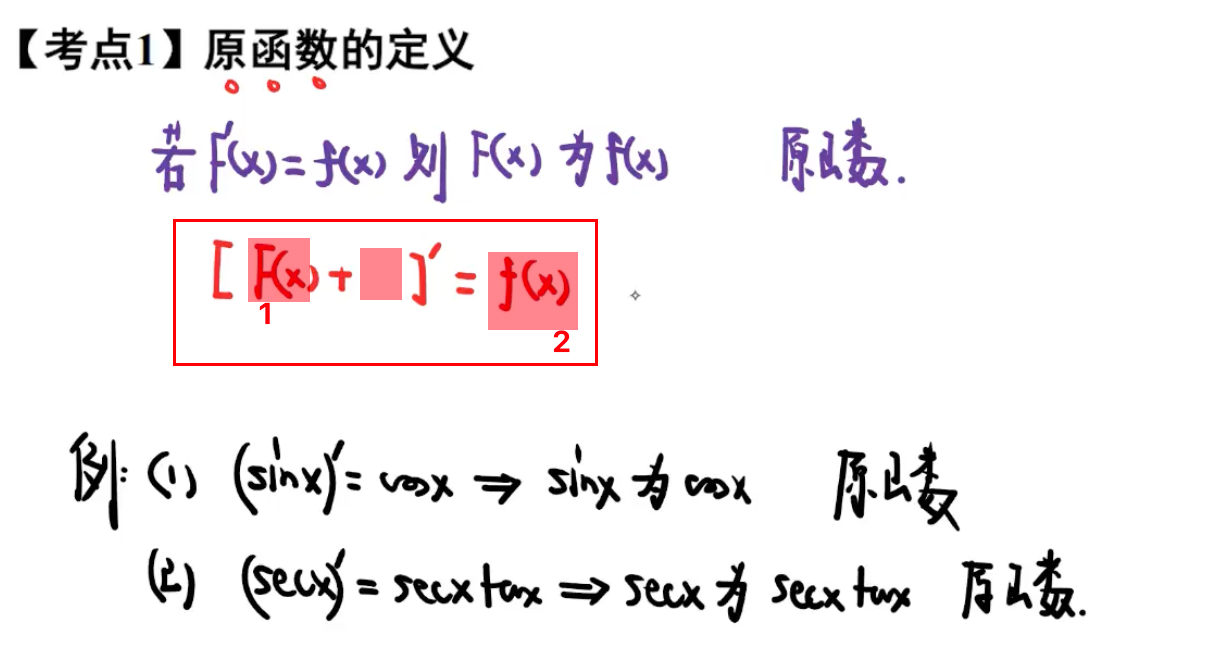 【考点1】原函数的定义
若 F'(x) = f(x) 则 F(x) 为 f(x) 原函数.
[ F(x) + ]' = f(x)
1
2
例: (1) (sinx)' = cosx ⇒ sinx 为 cosx 原函数
(2) (secx)' = secx tanx ⇒ secx 为 secx tanx 原函数.